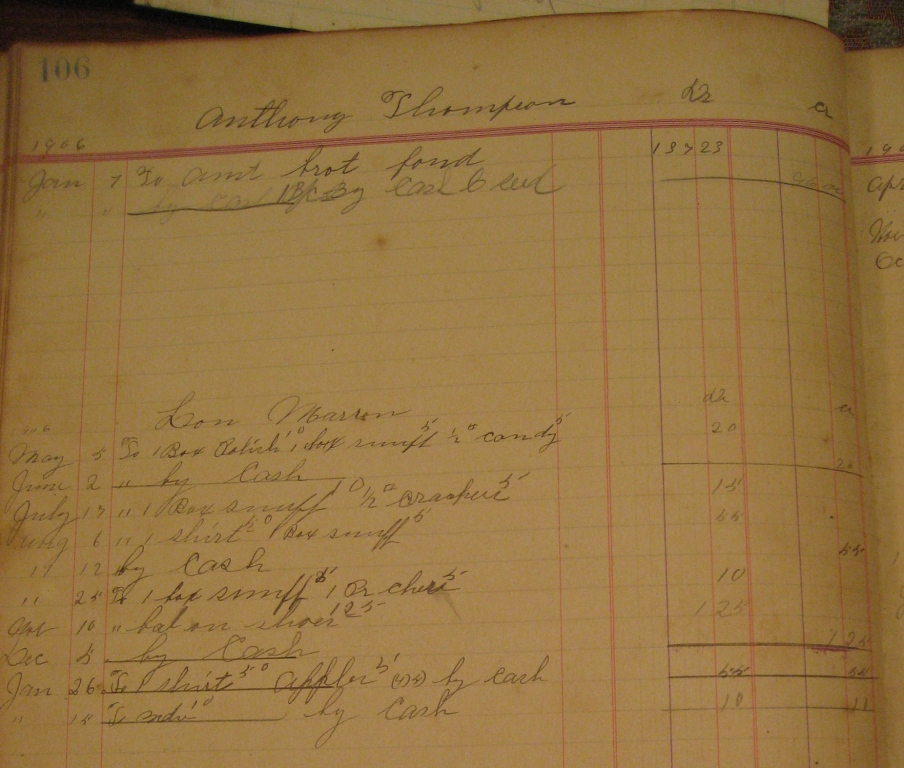 106
Anthony Thompson Dr Cr
1906
Jan 7 To amt brot ford 137 23
" " by Cash 6
Lon Marron Dr Cr
May 5 To 1 Box Polish 1 box snuff 5 ½ D candy 5 20
June 2 " by Cash 20
July 17 " 1 Box snuff 10 ½ D crackers 5 15
Aug 6 " 1 shirt 50 1 Box snuff 5 55
" 12 by Cash 55
" 25 To 1 box snuff 5 1 5 10
Nov 10 " bal on shoes 125 1 25
Dec 5 by Cash 1 25
Jan 26 To 1 shirt 50 apples 5 by cash 55 55
" 15 To by Cash 10 11
190
Apr
Nov